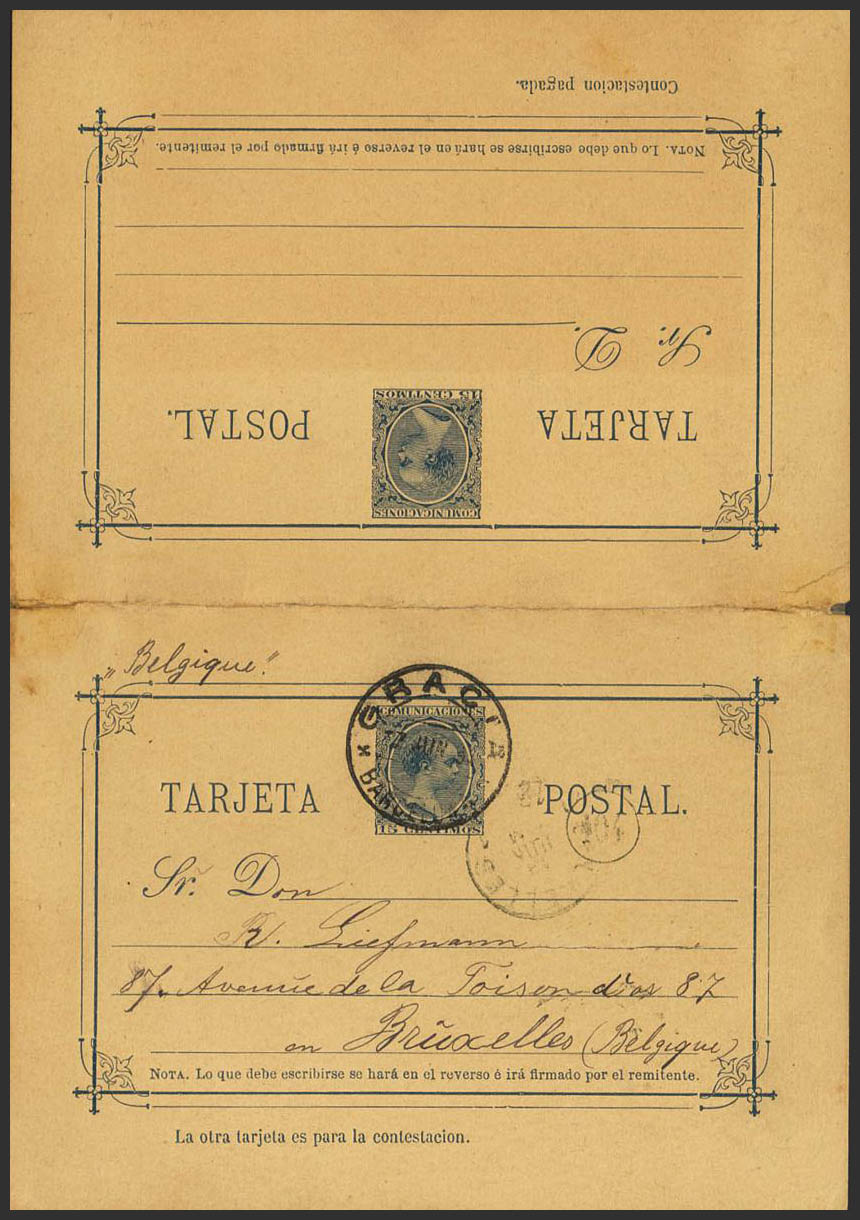 Contestacion pagada.
NOTA. Lo que debe escribirse se hará en el reverso é irá firmado por el remitente.
Sr. D.
TARJETA POSTAL.
15 CENTIMOS
COMUNICACIONES
"Belgique"
GRACIA
COMUNICACIONES
JUN
TARJETA POSTAL.
15 CENTIMOS
104
Sr. Don
R. Liefmann
87. Avenue de la Toison d'or 87
en Bruxelles (Belgique)
NOTA. Lo que debe escribirse se hará en el reverso é irá firmado por el remitente.
La otra tarjeta es para la contestacion.